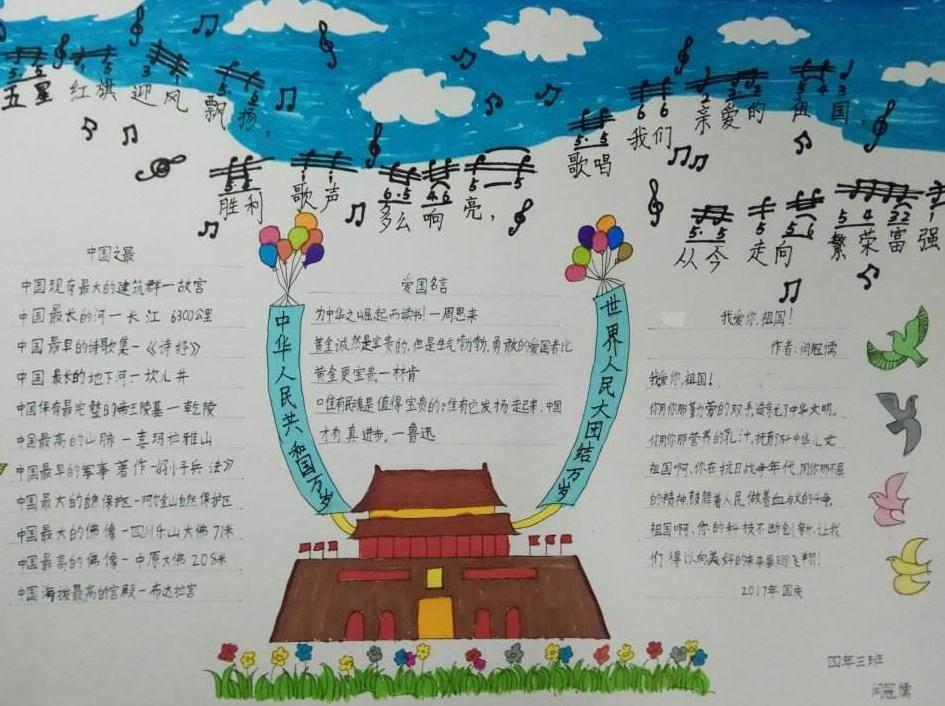 五星 红旗 迎风 飘扬,
胜利 歌声 多么 响亮,
歌唱 我们 亲爱的 祖国,
从今 走向 繁荣富强
中国之最
中国现存最大的建筑群一故宫
中国最长的河一长江 6300公里
中国最早的诗歌集-《诗经》
中国最长的地下河一坎儿井
中国保存最完整的帝王陵墓一乾陵
中国最高的山脉-喜玛拉雅山
中国最早的军事著作-《孙子兵法》
中国最大的自然保护区-阿尔金山自然保护区
中国最大的佛像-四川乐山大佛71米
中国最高的佛像-中原大佛208米
中国海拔最高的宫殿-布达拉宫
中华人民共和国万岁
爱国名言
为中华之崛起而读书!一周恩来
黄金诚然是宝贵的,但是生气勃勃,勇敢的爱国者比
黄金更宝贵。一林肯
唯有民魂是值得宝贵的,惟有它发扬走起来,中国
才有真进步。一鲁迅
世界人民大团结万岁
我爱你,祖国!
作者:闫冠儒
我爱你,祖国!
你用你那勤劳的双手,造就了中华文明。
你用你那营养的乳汁,抚育了中华儿女。
祖国啊,你在抗日战争年代,用你那不屈
的精神,鼓舞着人民做着血与火的斗争。
祖国啊,你的科技不断创新,让我
们得以向美好的未来展翅飞翔!
2017年国庆
四年三班
闫冠儒